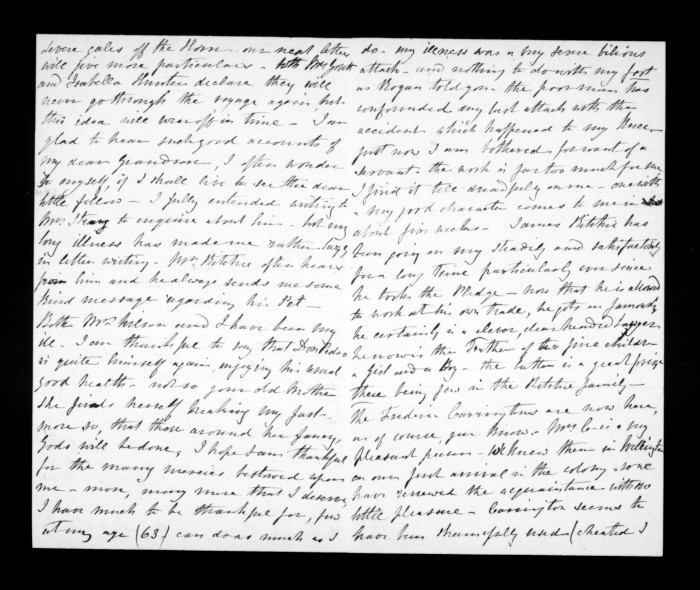 severe gales off the Horn - our next letter
will give more particulars - both Mrs
and Isabella Hunter declare they will
never go through the voyage again but
this idea will wear off in time - I am
glad to hear such good accounts of
my dear Grandson, I often wonder
to myself, if I shall live to see this dear
little fellow - I fully intended writing to
Mrs. Strang to enquire about him - but my
long illness has made me rather lazy
in letter writing - Mr. Ritchie often hears
from him and he always sends me some
kind message regarding his Pet -
Both Mrs. Wilson and I have been very
ill - I am thankful to say that Don Pedro
is quite himself again, enjoying his usual
good health - not so your old Mother
She finds herself breaking very fast -
more so, than those around her fancy,
Gods will be done, I hope I am thankful
for the many mercies bestowed upon
me - more, many more than I deserve,
I have much to be thankful for, few
at my age (63) can do as much as I
do - my illness was a very severe bilious
attack - and nothing to do with my foot
as Rogan told you - the poor man has
confounded my last attack with the
accident which happened to my Knee -
just now I am bothered for want of a
servant - the work is far too much for me
I find it tell dreadfully on me - one with
a very good character comes to me in
about five weeks - James Ritchie has
been going on very steadily and satisfactorily
for a long time particularly ever since
he took the Pledge - now that he is allowed
to work at his own trade, he gets on famously
he certainly is a clever, clear headed
he now is the Father of five children
a Girl and a Boy - the latter is a great prize
there being few in the Ritchie family -
The Frederic Carringtons are now here,
as of course, you know - Mrs C - is a very
pleasant person - We knew them in Wellington
on our first arrival in the colony - so we
have renewed the acquaintance with no
little pleasure - Carrington seems to
have been shamefully used (cheated I